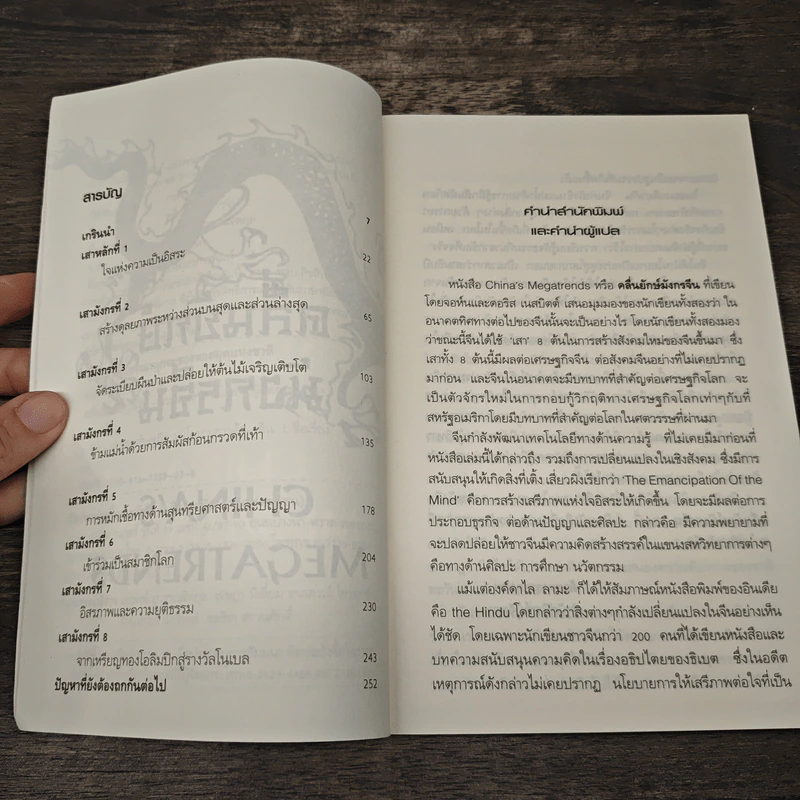 สารบัญ
7
เกริ่นนำ
เสาหลักที่ 1
22
ใจแห่งความเป็นอิสระ
เสามังกรที่ 2
สร้างดุลยภาพระหว่างส่วนบนสุดและส่วนล่างสุด
65
เสามังกรที่ 3
จัดระเบียบผืนป่าและปล่อยให้ต้นไม้เจริญเติบโต
103
เสามังกรที่ 4
ข้ามแม่น้ำด้วยการสัมผัสก้อนกรวดที่เท้า
135
เสามังกรที่ 5
การหมักเชื้อทางด้านสุนทรียศาสตร์และปัญญา
178
เสามังกรที่ 6
เข้าร่วมเป็นสมาชิกโลก
204
เสามังกรที่ 7
อิสรภาพและความยุติธรรม
230
เสามังกรที่ 8
จากเหรียญทองโอลิมปิกสู่รางวัลโนเบล
243
ปัญหาที่ยังต้องถกกันต่อไป
252
คำนำสำนักพิมพ์
และคำนำผู้แปล
หนังสือ China's Megatrends หรือ คลื่นยักษ์มังกรจีน ที่เขียน
โดยจอห์นและดอริส เนสบิตต์ เสนอมุมมองของนักเขียนทั้งสองว่า ใน
อนาคตทิศทางต่อไปของจีนนั้นจะเป็นอย่างไร โดยนักเขียนทั้งสองมอง
ว่าขณะนี้จีนได้ใช้ 'เสา' 8 ต้นในการสร้างสังคมใหม่ของจีนขึ้นมา ซึ่ง
เสาทั้ง 8 ต้นนี้มีผลต่อเศรษฐกิจจีน ต่อสังคมจีนอย่างที่ไม่เคยปรากฏ
มาก่อน และจีนในอนาคตจะมีบทบาทที่สำคัญต่อเศรษฐกิจโลก จะ
เป็นตัวจักรใหม่ในการกอบกู้วิกฤติทางเศรษฐกิจโลกเท่าๆกับที่
สหรัฐอเมริกาโดยมีบทบาทที่สำคัญต่อโลกในศตวรรษที่ผ่านมา
จีนกำลังพัฒนาเทคโนโลยีทางด้านความรู้ ที่ไม่เคยมีมาก่อนที่
หนังสือเล่มนี้ได้กล่าวถึง รวมถึงการเปลี่ยนแปลงในเชิงสังคม ซึ่งมีการ
สนับสนุนให้เกิดสิ่งที่เติ้ง เสี่ยวผิงเรียกว่า 'The Emancipation Of the
Mind' คือการสร้างเสรีภาพแห่งใจอิสระให้เกิดขึ้น โดยจะมีผลต่อการ
ประกอบธุรกิจ ต่อด้านปัญญาและศิลปะ กล่าวคือ มีความพยายามที่
จะปลดปล่อยให้ชาวจีนมีความคิดสร้างสรรค์ในแขนงสหวิทยาการต่างๆ
คือทางด้านศิลปะ การศึกษา นวัตกรรม
แม้แต่องค์ดาไล ลามะ ก็ได้ให้สัมภาษณ์หนังสือพิมพ์ของอินเดีย
คือ the Hindu โดยกล่าวว่าสิ่งต่างๆกำลังเปลี่ยนแปลงในจีนอย่างเห็น
ได้ชัด โดยเฉพาะนักเขียนชาวจีนกว่า 200 คนที่ได้เขียนหนังสือและ
บทความสนับสนุนความคิดในเรื่องอธิปไตยของธิเบต ซึ่งในอดีต
เหตุการณ์ดังกล่าวไม่เคยปรากฏ นโยบายการให้เสรีภาพต่อใจที่เป็น